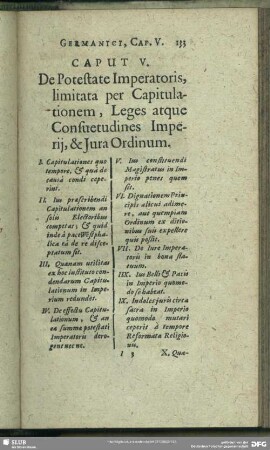 GERMANICI, CAP. V. 133
CAPUT V.
De Potestate Imperatoris,
limitata per Capitula-
tionem, Leges atque
Consuetudines Impe-
rij, & Jura Ordinum.
I. Capitulationes quo
tempore, & quâ de
causâ condi cepe-
rint.
II. Ius præscribendi
Capitulationem an
solis Electoribus
competat; & quid
inde à pace Westpha-
lica eâ de re discep-
tatum sit.
III. Quanam utilitas
ex hoc instituto con-
dendarum Capitu-
lationum in Impe-
rium redundet.
IV. De effectu Capitu-
lationum, & an
ea summa potestati
Imperatoris dero-
getur nec ne.
V. Ius constituendi
Magistratus in Im-
perio penes quem
sit.
VI. Dignationem Prin-
cipis alicui adime-
re, aut quempiam
Ordinum ex ditio-
nibus suis expellere
quis possit.
VII. De Iure Impera-
toris in bona sta-
tuum.
IIX. Ius Belli & Pacis
in Imperio quomo-
do se habeat.
IX. Indoles juris circa
sacra in Imperio
quomodo mutari
ceperit à tempore
Reformatæ Religio-
nis.
I 3 X. Quæ-
SLUB
DFG